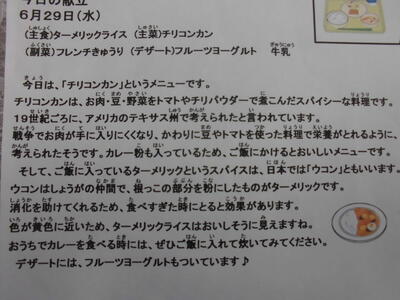 今日の献立
6月29日(水)
(主食)ターメリックライス (主菜)チリコンカン
(副菜)フレンチきゅうり (デザート)フルーツヨーグルト 牛乳
今日は、「チリコンカン」というメニューです。
チリコンカンは、お肉・豆・野菜をトマトやチリパウダーで煮こんだスパイシーな料理です。
19世紀ごろに、アメリカのテキサス州で考えられたと言われています。
戦争でお肉が手に入りにくくなり、かわりに豆やトマトを使った料理で栄養がとれるように、
考えられたそうです。カレー粉も入っているため、ご飯にかけるとおいしいメニューです。
そして、ご飯に入っているターメリックというスパイスは、日本では「ウコン」ともいいます。
ウコンはしょうがの仲間で、根っこの部分を粉にしたものがターメリックです。
消化を助けてくれるため、食べすぎた時にとると効果があります。
色が黄色に近いため、ターメリックライスはおいしそうに見えますね。
おうちでカレーを食べる時には、ぜひご飯に入れて炊いてみてください。
デザートには、フルーツヨーグルトもついています♪